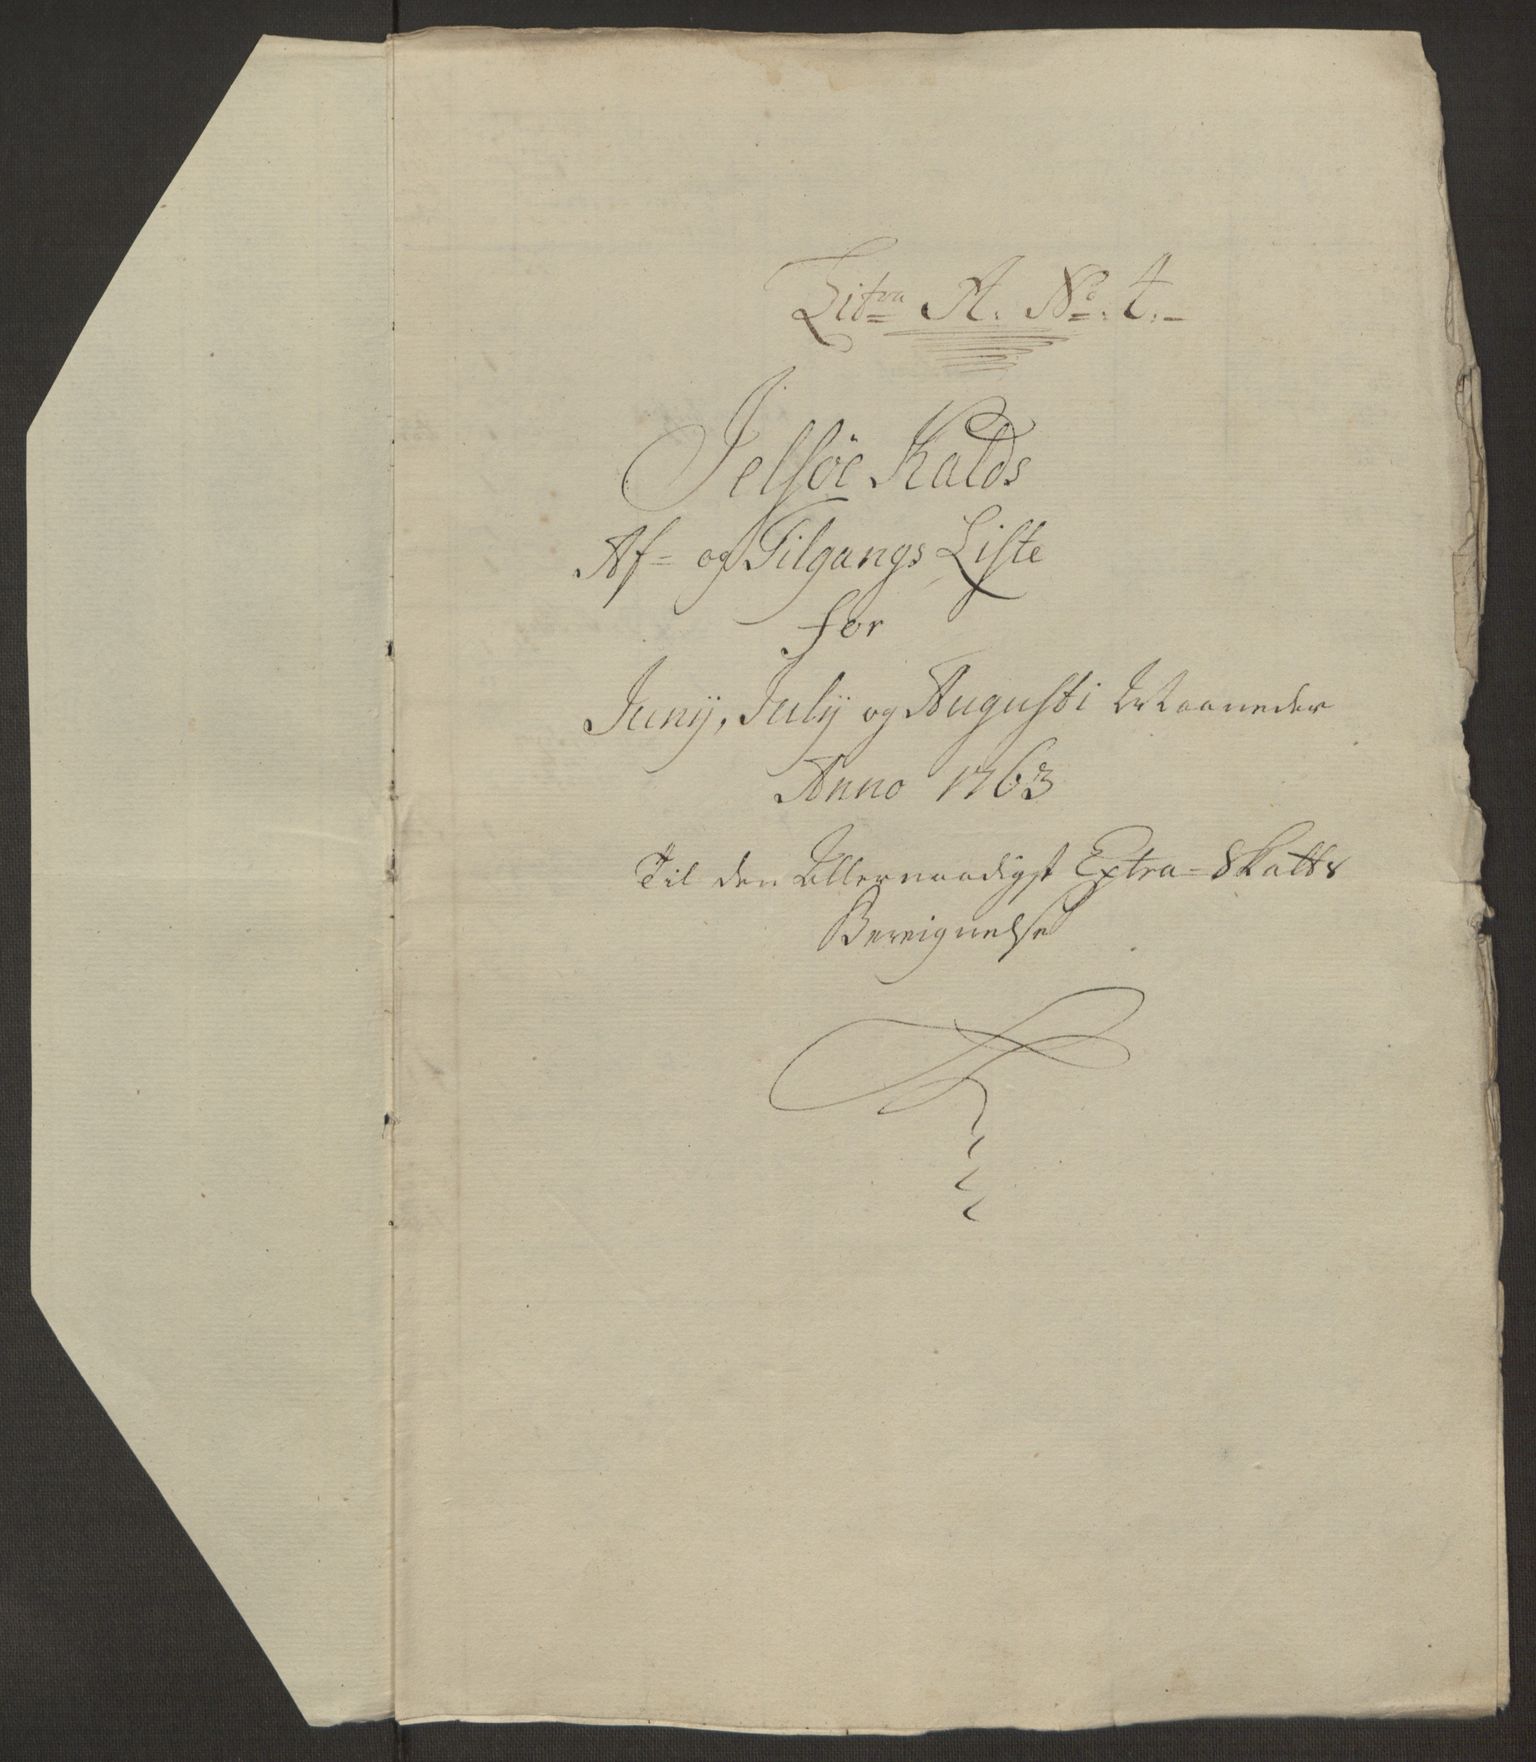 Litra A. No. 4.
Jelsöe Kalds
Af- og Tilgangs Liste
for
Junij, Julij og Augusti Maaneder
Anno 1763
Til den Allernaadigst Extra-Skatts
Bereignelse